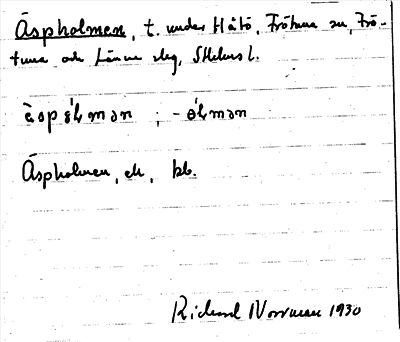 Åspholmen, t. under Håtö, Frötuna sn, Frö-
tuna och Länna slg, Sthlms l.
àspø̀ḷmən ; -ø̀ḷmən
Åspholmen, ek, kb.
Richard Norrman 1930